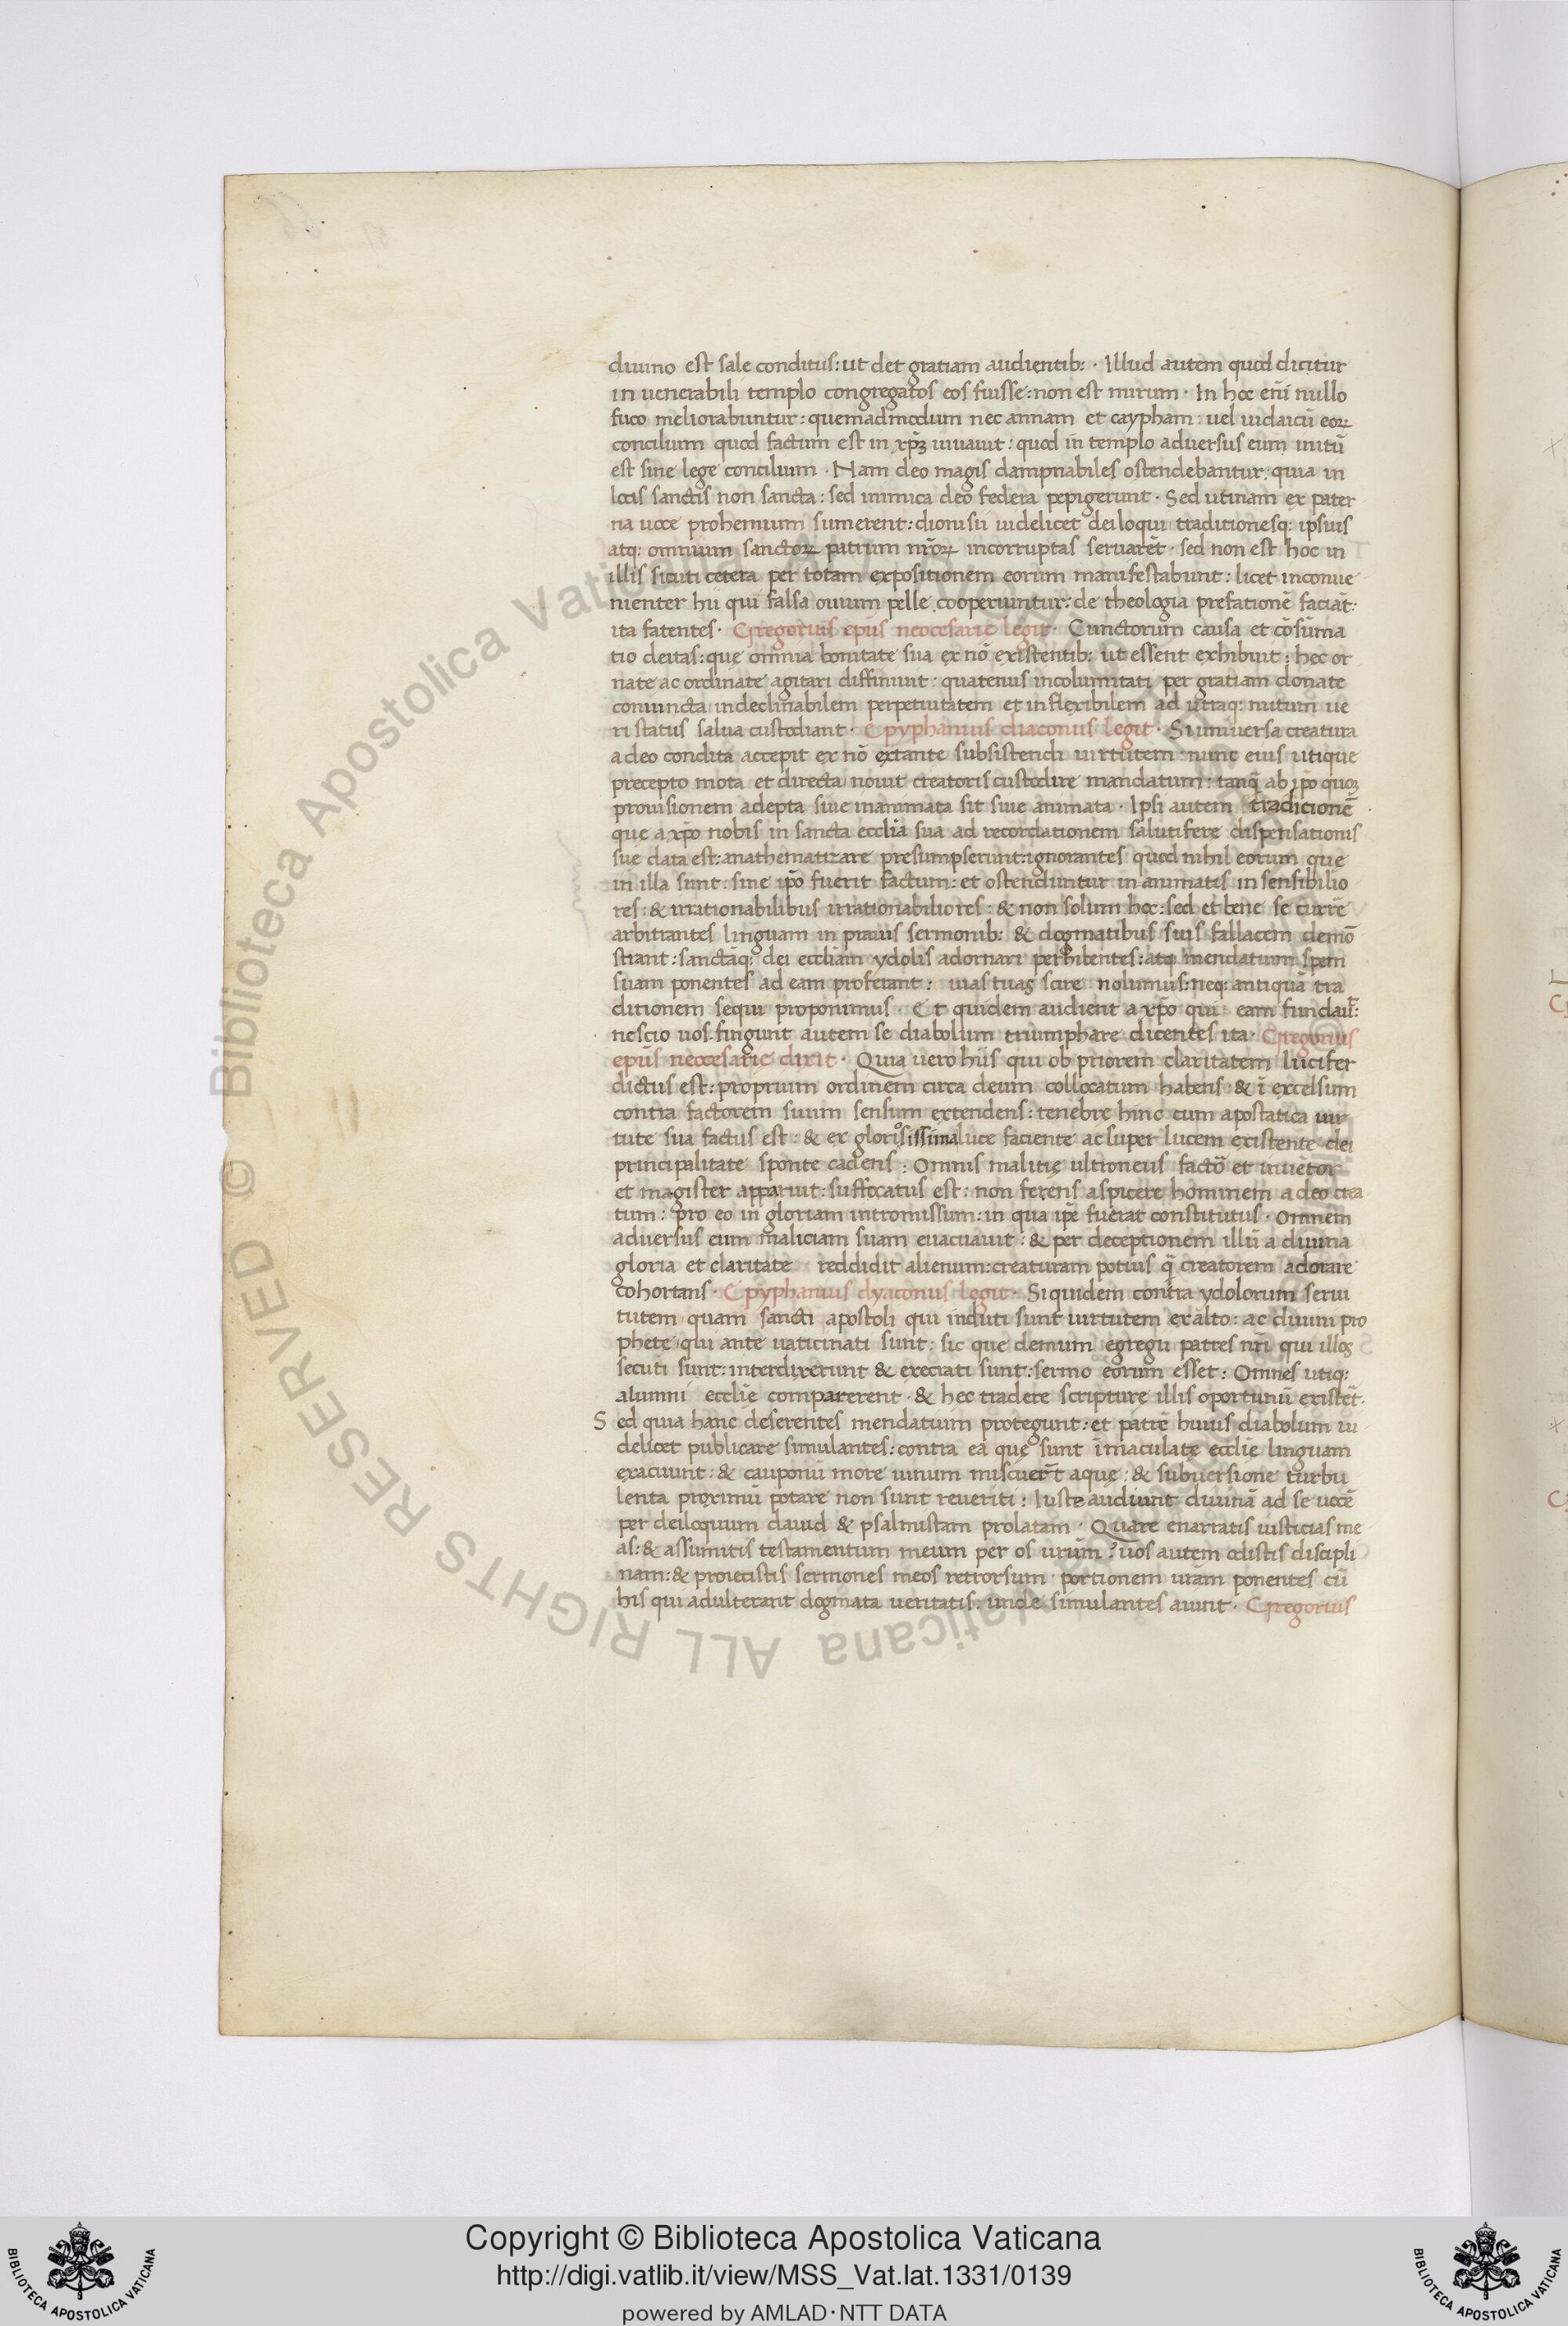 diuino est sale conditus: ut det gratiam audientib: · Illud autem quod dicitur
in uenerabili templo congregatos eos fuisse: non est mirum · In hoc eni nullo
fuco meliorabuntur: quemadmodum nec annam et caypham: uel iudaicū eoꝝ
concilium quod factum est in iuuauit: quod in templo aduersus eum initū
est sine lege concilium · Nam deo magis dampnabiles ostendebantur: quia in
locis sanctis non sancta: sed inimica deo federa pepigerunt · Sed utinam ex pater
na uoce prohemium sumerent: dionisii uidelicet deiloqui traditionesq: ipsius
atq: omnium sanctoꝝ patrum nr̄oꝝ incorruptas seruarēt · sed non est hoc in
illis sicuti cetera per totam expositionem eorum manifestabunt: licet inconue
nienter hii qui falsa ouium pelle cooperiuntur: de theologia prefationē faciāt:
ita fatentes · Gregorius ep̄us neocesarie legit · Cunctorum causa et cōsūma
tio deitas: que omnia bonitate sua ex nō existentib: ut essent exhibuit: hec or
nate ac ordinate agitari diffiniuit: quatenus incolumitati per gratiam donate
coniuncta indeclinabilem perpetuitatem et inflexibilem ad utraq: nutum ue
ri status salua custodiant · Epyphanius diaconus legit · Si uniuersa creatura
a deo condita accepit ex nō extante subsistendi uirtutem: nunc eius utique
precepto mota et directa nouit creatoris custodire mandatum: tanq̄ ab ip̄o quoꝫ
prouisionem adepta siue inanimata sit siue animata · Ipsi autem tradicionē
que a xp̄o nobis in sancta ecclia sua ad recordationem salutifere dispensationis
sue data est: anathematizare presumpserunt: ignorantes quod nihil eorum que
in illa sunt: sine ip̄o fuerit factum: et ostenduntur inanimatis insensibilio
res: & irrationabilibus irrationabiliores: & non solum hoc: sed et bene se currē
arbitrantes linguam in prauis sermonib: & dogmatibus suis fallacem demō
strant: sanctāq: dei eccliam ydolis adornari perhibentes: atq mendatium spem
suam ponentes ad eam proferant: uias tuas scire nolumus: neq: antiquā tra
ditionem sequi proponimus · Et quidem audient a xp̄o qui eam fundauit:
nescio uos. fingunt autem se diabolum triumphare dicentes ita · Gregorius
ep̄us neocesarie dixit · Quia uero hiis qui ob priorem claritatem lucifer
dictus est: proprium ordinem circa deum collocatum habens: & ī excelsum
contra factorem suum sensum extendens: tenebre hinc cum apostatica uir
tute sua factus est: & ex gloriosissima luce faciente ac super lucem existente dei
principalitate sponte cadens: Omnis malitie ultroneus et inuetor
et magister apparuit: suffocatus est: non ferens aspicere hominem a deo crea
tum: pro eo in gloriam intromissum: in qua ip̄e fuerat constitutus · Omnem
aduersus eum maliciam suam euacuauit: & per deceptionem illū a diuina
gloria et claritate reddidit alienum: creaturam potius q̄ creatorem adorare
cohortans · Epyphanius dyaconus legit · Si quidem contra ydolorum serui
tutem quam sancti apostoli qui induti sunt uirtutem ex alto: ac diuini pro
phete qui ante uaticinati sunt: sic que demum egregii patres nr̄i qui illos
secuti sunt: interdixerunt & execrati sunt: sermo eorum esset: Omnes utiq:
alumni ecclie comparerent · & hec tradere scripture illis oportunū existēt·
Sed quia hanc deserentes mendatium protegunt: et patrē huius diabolum ui
delicet publicare simulantes: contra ea que sunt īmaculate ecclie linguam
exacuunt: & cauponū more uinum miscuer̄t aque: & subuersione turbu
lenta proximū potare non sunt reueriti: Iuste audiunt diuinā ad se uocē
per deiloquum dauid & psalmistam prolatam · Quare enarratis iusticias me
as: & assumitis testamentum meum per os ur̄um? uos autem odistis discipli
nam: & proiecistis sermones meos retrorsum · portionem ur̄am ponentes cū
his qui adulterant dogmata ueritatis: unde simulantes aiunt · Gregorius
© Biblioteca Apostolica Vaticana ALL RIGHTS RESERVED
Copyright © Biblioteca Apostolica Vaticana
http://digi.vatlib.it/view/MSS_Vat.lat.1331/0139
powered by AMLAD·NTT DATA
BIBLIOTECA APOSTOLICA VATICANA
BIBLIOTECA APOSTOLICA VATICANA